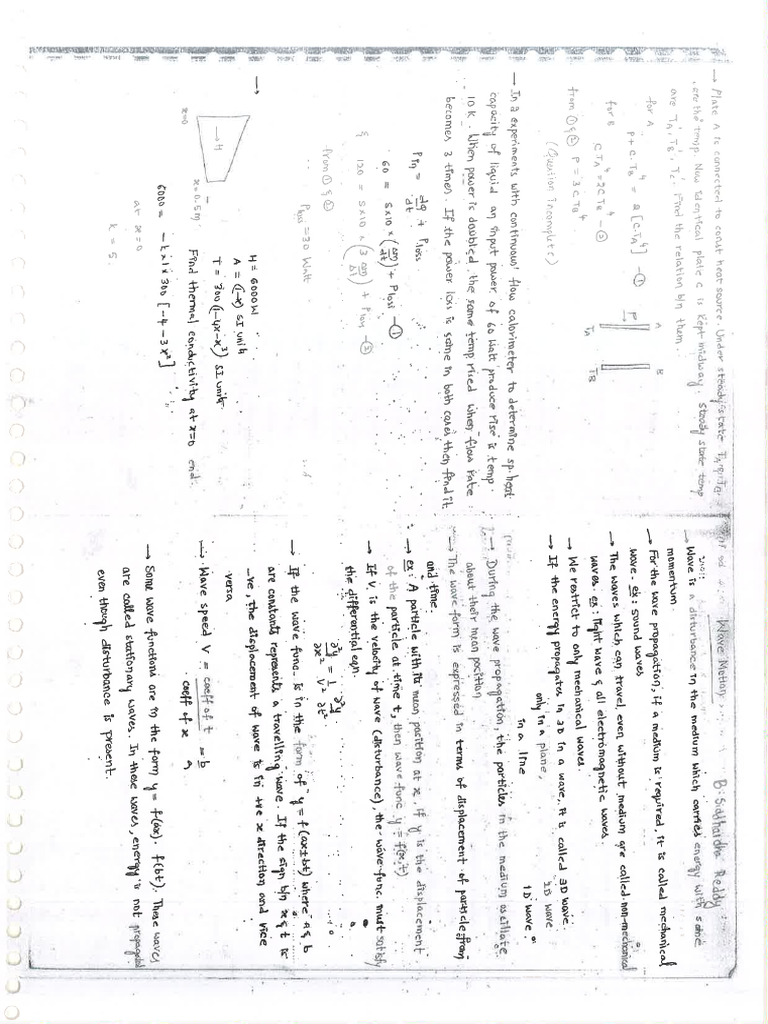 → Plate A is connected to const heat source. Under steady state TA & TB
are the temp. Now identical plate C is kept midway. steady state temp
are TA', TB', TC'. Find the relation b/n them.
for A
P + C.TA⁴ = 2[C.TA⁴] - ①
for B
C TA⁴ = 2C TB⁴ - ②
from ① & ② P = 3CTB⁴
(Question incomplete)
A
B
P
TA
TB
→ In a experiments with continuous flow calorimeter to determine sp. heat
capacity of liquid an input power of 60 Watt produce rise in temp.
10 K. When power is doubled the same temp rised when flow rate
becomes 3 times. If the power loss is same in both cases then find it.
Pin = dQ/dt + Ploss
60 = S×10×(Δm/Δt) + Ploss - ①
& 120 = S×10×(3 Δm/Δt) + Ploss - ②
From ① & ②
Ploss = 30 Watt
→
x=0
→ H
x=0.5m
H = 6000W
A = (1-x) SI units
T = 300(1-4x-x³) SI units
Find thermal conductivity at x=0 end.
6000 = -k×1×300[-4-3x²]
at x=0
k = 5.
Wave Motion
B. Siddhardha Reddy
→ Wave is a disturbance in the medium which carries energy with some
momentum.
→ For the wave propagation, if a medium is required, it is called mechanical
wave. ex: sound waves
→ The waves which can travel even without medium are called non-mechanical
waves. ex: light waves all electromagnetic waves.
→ We restrict to only mechanical waves.
→ If the energy propagates in 3D in a wave, it is called 3D wave.
only in a plane, 2D wave
in a line 1D wave
→ During the wave propagation, the particles in the medium oscillate
about their mean position
→ The wave form is expressed in terms of displacement of particle from
and time.
→ ex: A particle with its mean position at x, if y is the displacement
of the particle at time t, then wave func y = f(x,t)
→ If V, is the velocity of wave (disturbance), the wave func. must satisfy
the differential eqn.
∂²y/∂x² = 1/V² ∂²y/∂t²
→ If the wave func. is in the form of y = f(ax±bt) where a & b
are constants represents a travelling wave. If the sign b/n x & t is
-ve, the displacement of wave is in +ve x direction and vice
versa
→ Wave speed V = coeff of t / coeff of x = b/a
→ Some wave functions are in the form y = f(ax). f(bt). These waves
are called stationary waves. In these waves, energy is not propagated
even though disturbance is present.